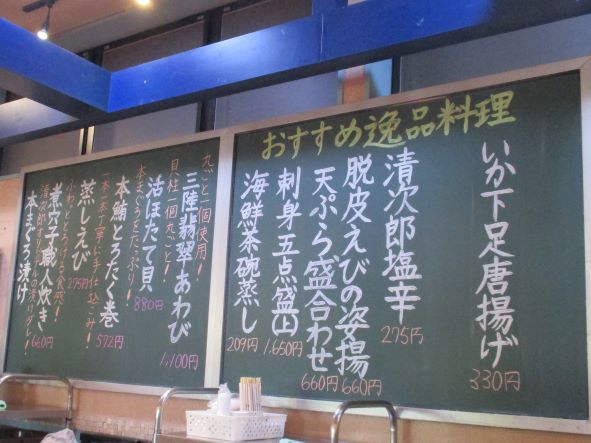 おすすめ逸品料理
いか下足唐揚げ
330円
清次郎塩辛
275円
脱皮えびの姿揚
660円
天ぷら盛合わせ
660円
刺身五点盛(上)
1,650円
海鮮茶碗蒸し
209円
丸ごと一個使用!
三陸翡翠あわび
1,100円
貝柱一個丸ごと!
活ほたて貝
880円
本まぐろをたっぷり!
本鮪とろたく巻
572円
一本一本丁寧に手仕込み!
蒸しえび
275円
ふわっととろける食感!
煮穴子職人炊き
660円
清次郎オリジナルの漬けダレ!
本まぐろ漬け